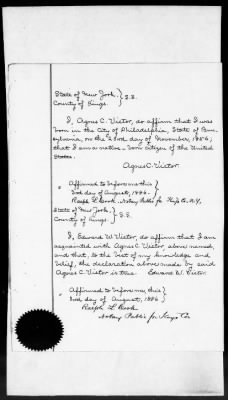 State of New York, } S.S.
County of Kings. }
I, Agnes C. Victor, do affirm that I was
born in the City of Philadelphia, State of Pen-
sylvania, on the 23rd day of November, 1856,
that I am a native-born citizen of the United
States.
Agnes C. Victor.
" Affirmed to before me, this }
3rd day of August, 1886.
Ralph L. Cook. Notary Public for Kings Co. N.Y.
State of New York, } S.S.
County of Kings. }
I, Edward W. Victor, do affirm that I am
acquainted with Agnes C. Victor, above named,
and that, to the best of my knowledge and
belief, the declaration above made by said
Agnes C. Victor is true. Edward W. Victor
" Affirmed to before me, this }
3rd day of August, 1886
Ralph L. Cook
Notary Public for Kings Co.